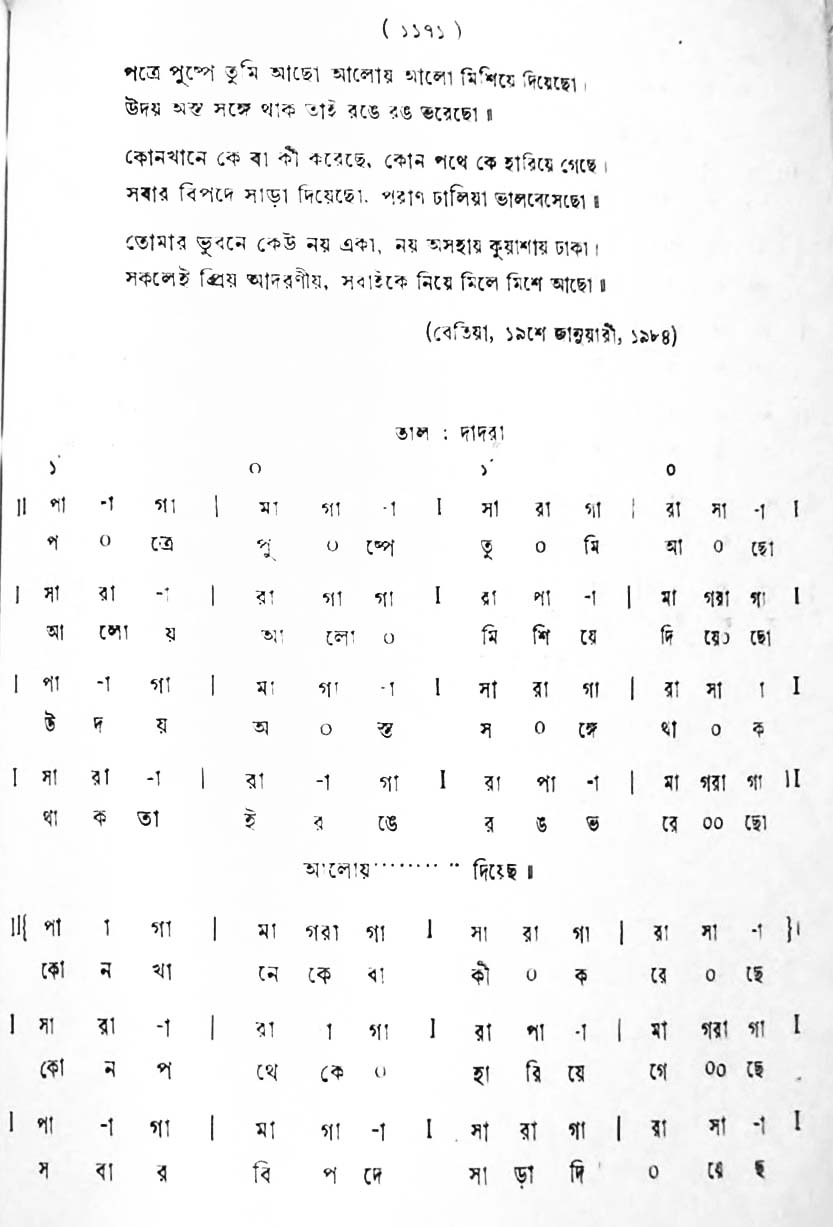 ( ১১৭১ )
পত্রে পুষ্পে তুমি আছো আলোয় আলো মিশিয়ে দিয়েছো।
উদয় অস্ত সঙ্গে থাক তাই রঙে রঙ ভরেছো॥
কোনখানে কে বা কী করেছে, কোন পথে কে হারিয়ে গেছে।
সবার বিপদে সাড়া দিয়েছো, পরাণ ঢালিয়া ভালবেসেছো॥
তোমার ভুবনে কেউ নয় একা, নয় অসহায় কুয়াশায় ঢাকা।
সকলেই প্রিয় আদরণীয়, সবাইকে নিয়ে মিলে মিশে আছো॥
(বেতিয়া, ১৯শে জানুয়ারী, ১৯৮৪)
তাল : দাদরা
১́ ০ ১́ ০
II পা -া গা | মা গা -া I সা রা গা | রা সা -া I
প ০ ত্রে পু ০ ষ্পে তু ০ মি আ ০ ছো
I সা রা -া | রা গা গা I রা পা -া | মা গরা গা I
আ লো য় আ লো ০ মি শি য়ে দি য়ে০ ছো
I পা -া গা | মা গা -া I সা রা গা | রা সা া I
উ দ য় অ ০ স্ত স ০ ঙ্গে থা ০ ক
I সা রা -া | রা -া গা I রা পা -া | মা গরা গা II
থা ক তা ই র ঙে র ঙ ভ রে ০০ ছো
আলোয়·········· দিয়েছ॥
II{ পা া গা | মা গরা গা I সা রা গা | রা সা -া }I
কো ন খা নে কে বা কী ০ ক রে ০ ছে
I সা রা -া | রা া গা I রা পা -া | মা গরা গা I
কো ন প থে কে ০ হা রি য়ে গে ০০ ছে
I পা -া গা | মা গা -া I সা রা গা | রা সা -া I
স বা র বি প দে সা ড়া দি ০ য়ে ছ